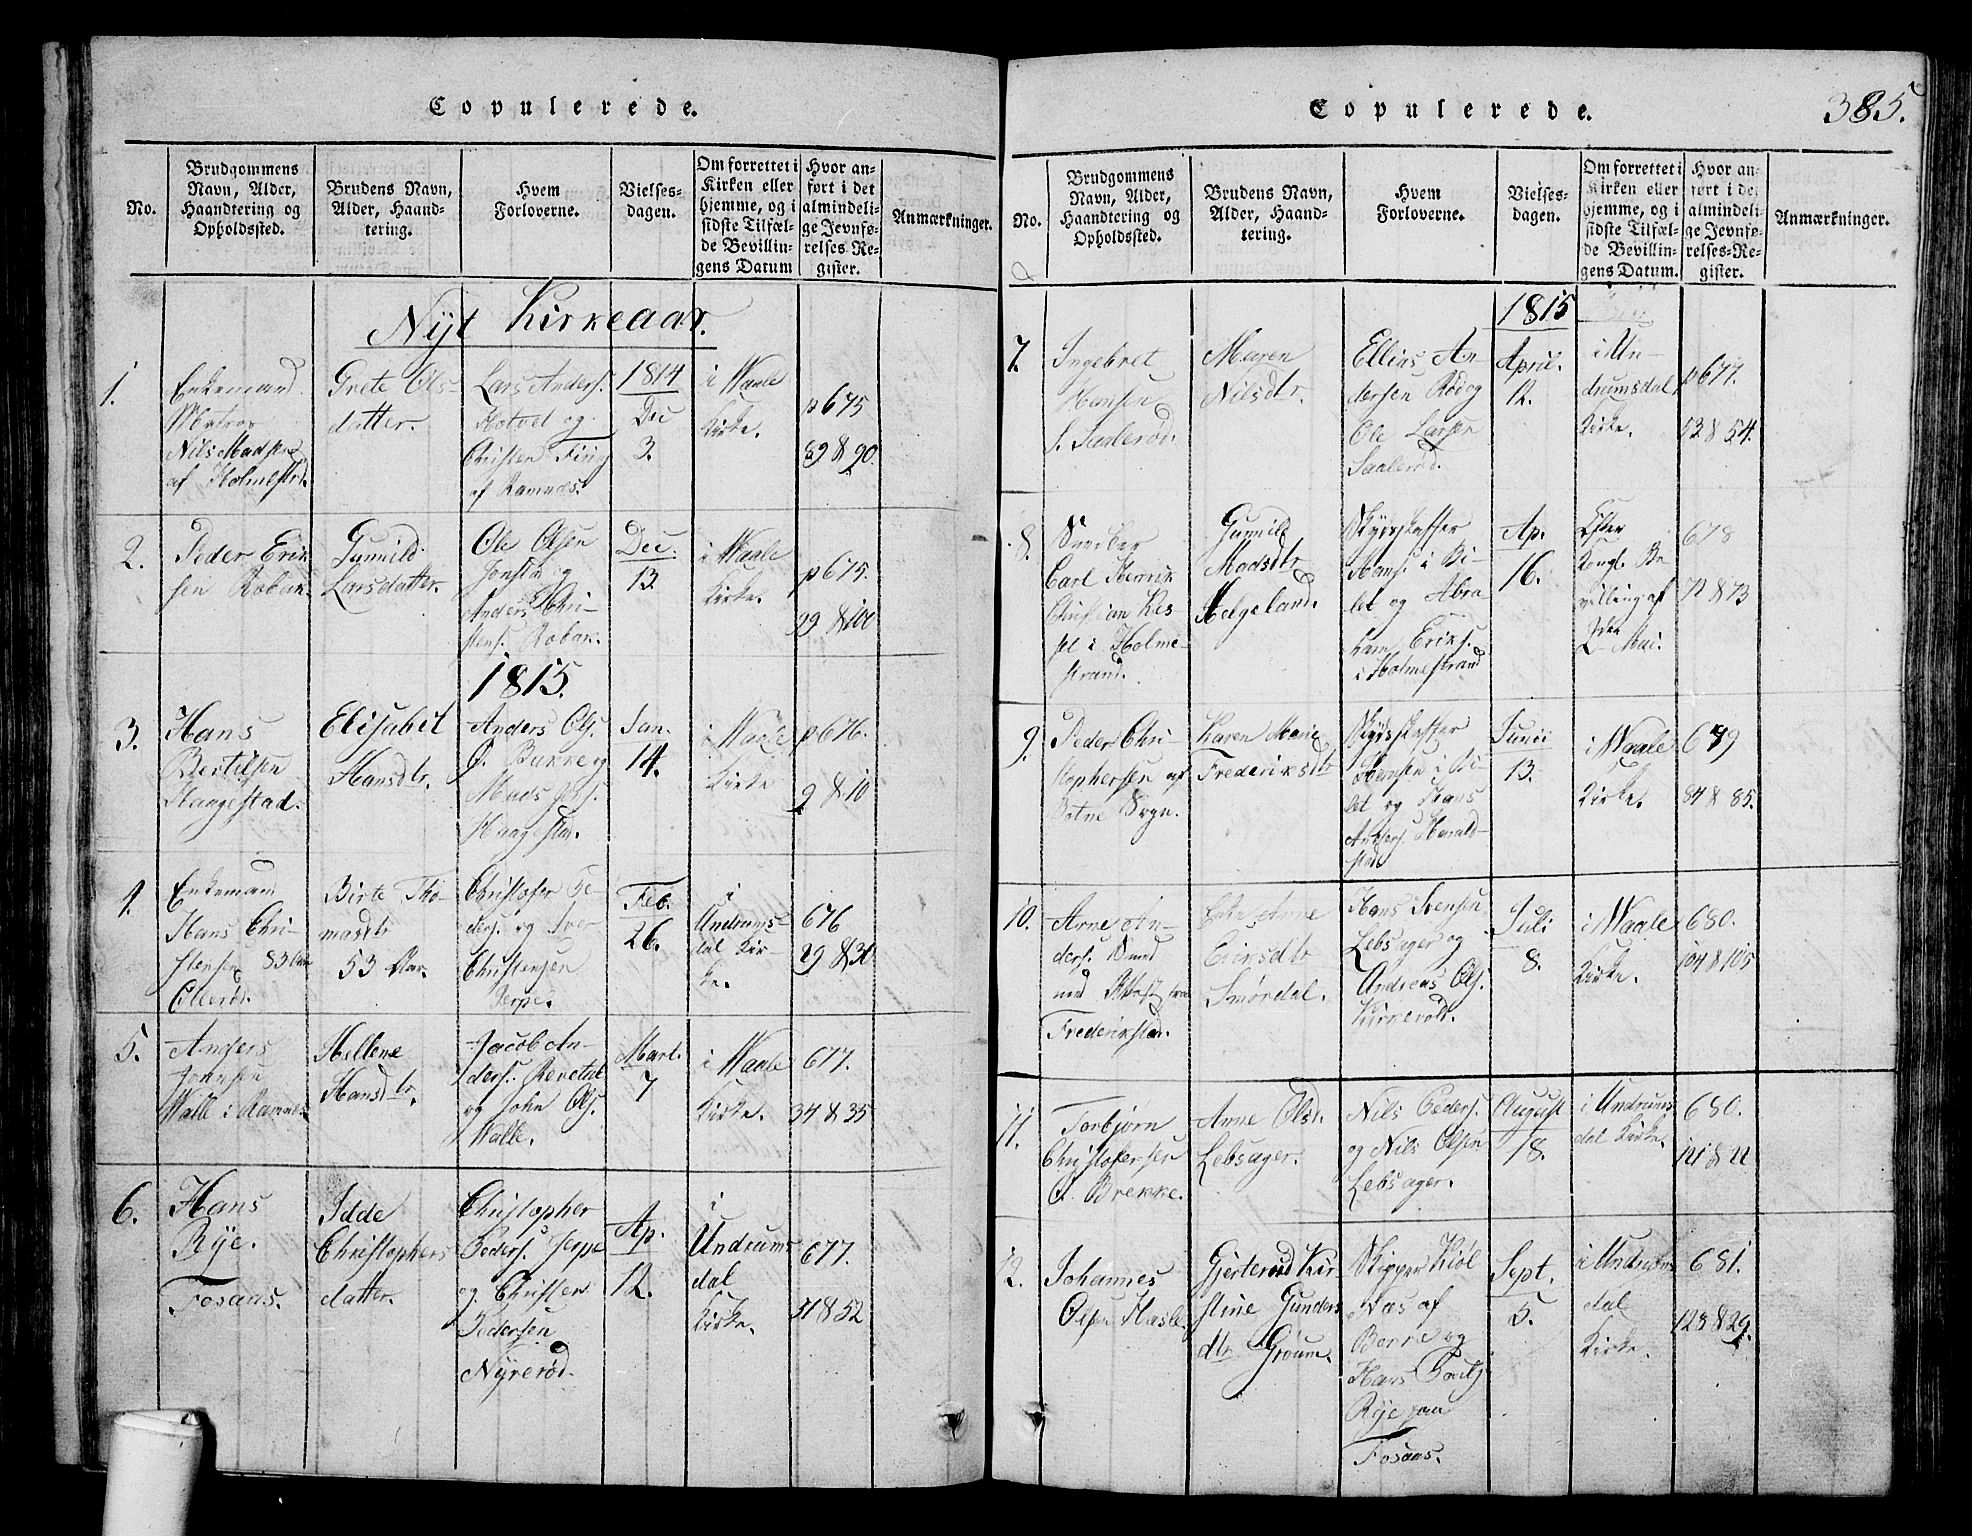 Copulerede.
No.
Brudgommens
Navn, Alder,
Haandtering og
Opholdssted.
Brudens Navn,
Alder, Haand-
tering.
Hvem
Forloverne.
Vielses-
dagen.
Om forrettet i
Kirken eller
hjemme, og i
sidste Tilfæl-
de Bevillin-
gens Datum
Hvor an-
ført i det
almindeli-
ge Jevnfø-
relses-Re-
gister.
Anmærkninger.
Nyt Kirkeaar.
1.
Enkemand
Matros
Nils Madsen
af Holmestrd.
Grete Ols-
datter.
Lars Anders.
Kotvet og
Christen Fiing
af Ramnæs.
1814
Dec
3.
i Waale
Kirke.
p 675
89 & 90.
2.
Peder Erik-
sen Roban.
Gunnild
Larsdatter.
Ole Olsen
Jonsta og
Anders Chri-
stens. Roban.
Dec.
13
i Waale
Kirke.
p 675.
99 & 100
1815.
3.
Hans
Bertilsen
Haagestad.
Elisabet
Hansdtr.
Anders Ols.
Ø. Bukker
Mads Jes.
Haagesta.
Jan.
14.
i Waale
Kirke
p 676.
9 & 10
4.
Enkemand
Hans Chri-
stensen 83 Aar
Ellerød.
Birte Tho-
masdtr
53 Aar.
Christofer Pe-
ders. og Iver
Christensen
Jerpe.
Feb.
26.
i
Undrums-
dal Kir-
ke.
676
29 & 30
5.
Anders
Johnsen
Walle i Ramnes
Hellene
Hansdtr.
Jacob An-
ders. Revetal
og John Ols.
Walle.
Mart.
7
i Waale
Kirke.
677.
34 & 35
6.
Hans
Rye.
Fosaas.
Idde
Christophers
datter.
Christopher
Peders. Jerpe
og Christen
Pedersen
Nyrerød.
Ap.
12.
i
Undrums
dal
Kirke.
677.
51 & 52
Copulerede.
385.
No.
Brudgommens
Navn, Alder,
Haandtering og
Opholdssted.
Brudens Navn,
Alder, Haand-
tering.
Hvem
Forloverne.
Vielses-
dagen.
Om forrettet i
Kirken eller
hjemme, og i
sidste Tilfæl-
de Bevillin-
gens Datum.
Hvor an-
ført i det
almindeli-
ge Jevnfø-
relses-Re-
gister.
Anmærkninger.
1815
7.
Ingebret
Hansen
S. Saalerød.
Maren
Nilsdtr.
Ellias An
dersen Rød og
Ole Larsen
Saalerød.
April.
12.
i Un-
drumsdal
Kirke.
p 677.
53 & 54.
8.
Snedker
Carl Henrik
Christian Kes-
sel i Holme-
strand.
Gunnild
Madsdtr
Helgeland.
Skydsskaffer
Hans. i Bi-
let og Abra-
ham Eriks.
i Holmestrand
Ap.
16.
Efter
Kongl. Be
villing af
Mai.
678
72 & 73
9.
Peder Chri-
stophersen af
Botne Sogn.
Karen Marie
Frederiksdtr
Skydsskaffer
Hansen i Bi-
let og Hans
Anders. Harald-
stad
Junii
13.
i Waale
Kirke.
679
84 & 85.
10.
Arne An-
ders. Smed
ved
Frederikstad.
Anne
Eriksdtr
Smørdal.
Hans Svensen
Lebsager og
Andreas Ols.
Kirkevold.
Juli
8.
i Waale
Kirke.
680.
104 & 105
11.
Torbjørn
Christofersen
Ø. Brekke.
Anne Olsd.
Lebsager.
Nils Peders.
og Nils Olsen
Lebsager.
August
18.
i Undrums
dal Kirke.
680.
121 & 22
12.
Johannes
Olsen Hasle.
Gjerterud Kir-
stine Gunders
dtr Grøum.
Skipper Kiøl
Aas af
Borre og
Hans Povels.
Rye paa
Fosaas.
Sept.
5.
i Undrums
dal
Kirke.
681.
128 & 29.